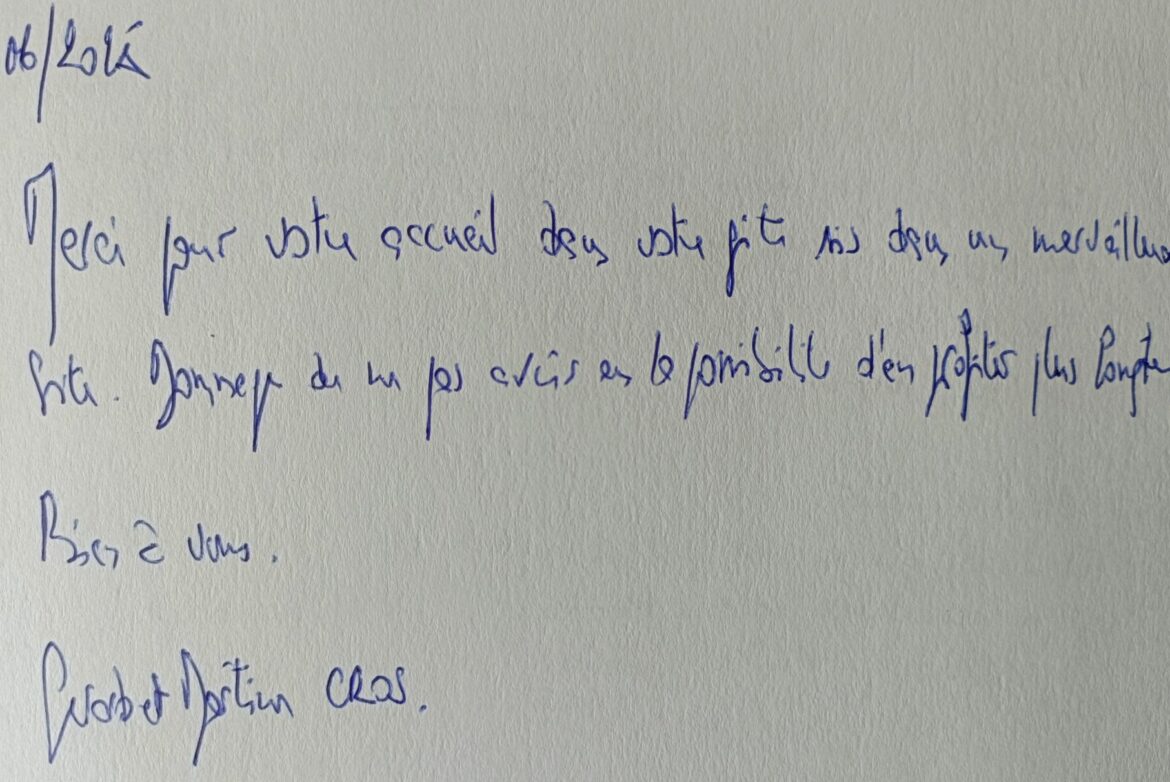 06/2024
Merci pour votre accueil dans votre gîte sis dans un merveilleux
site. Dommage de ne pas avoir eu la possibilité d'en profiter plus longtemps
Bien à vous.
et Martine CROS.